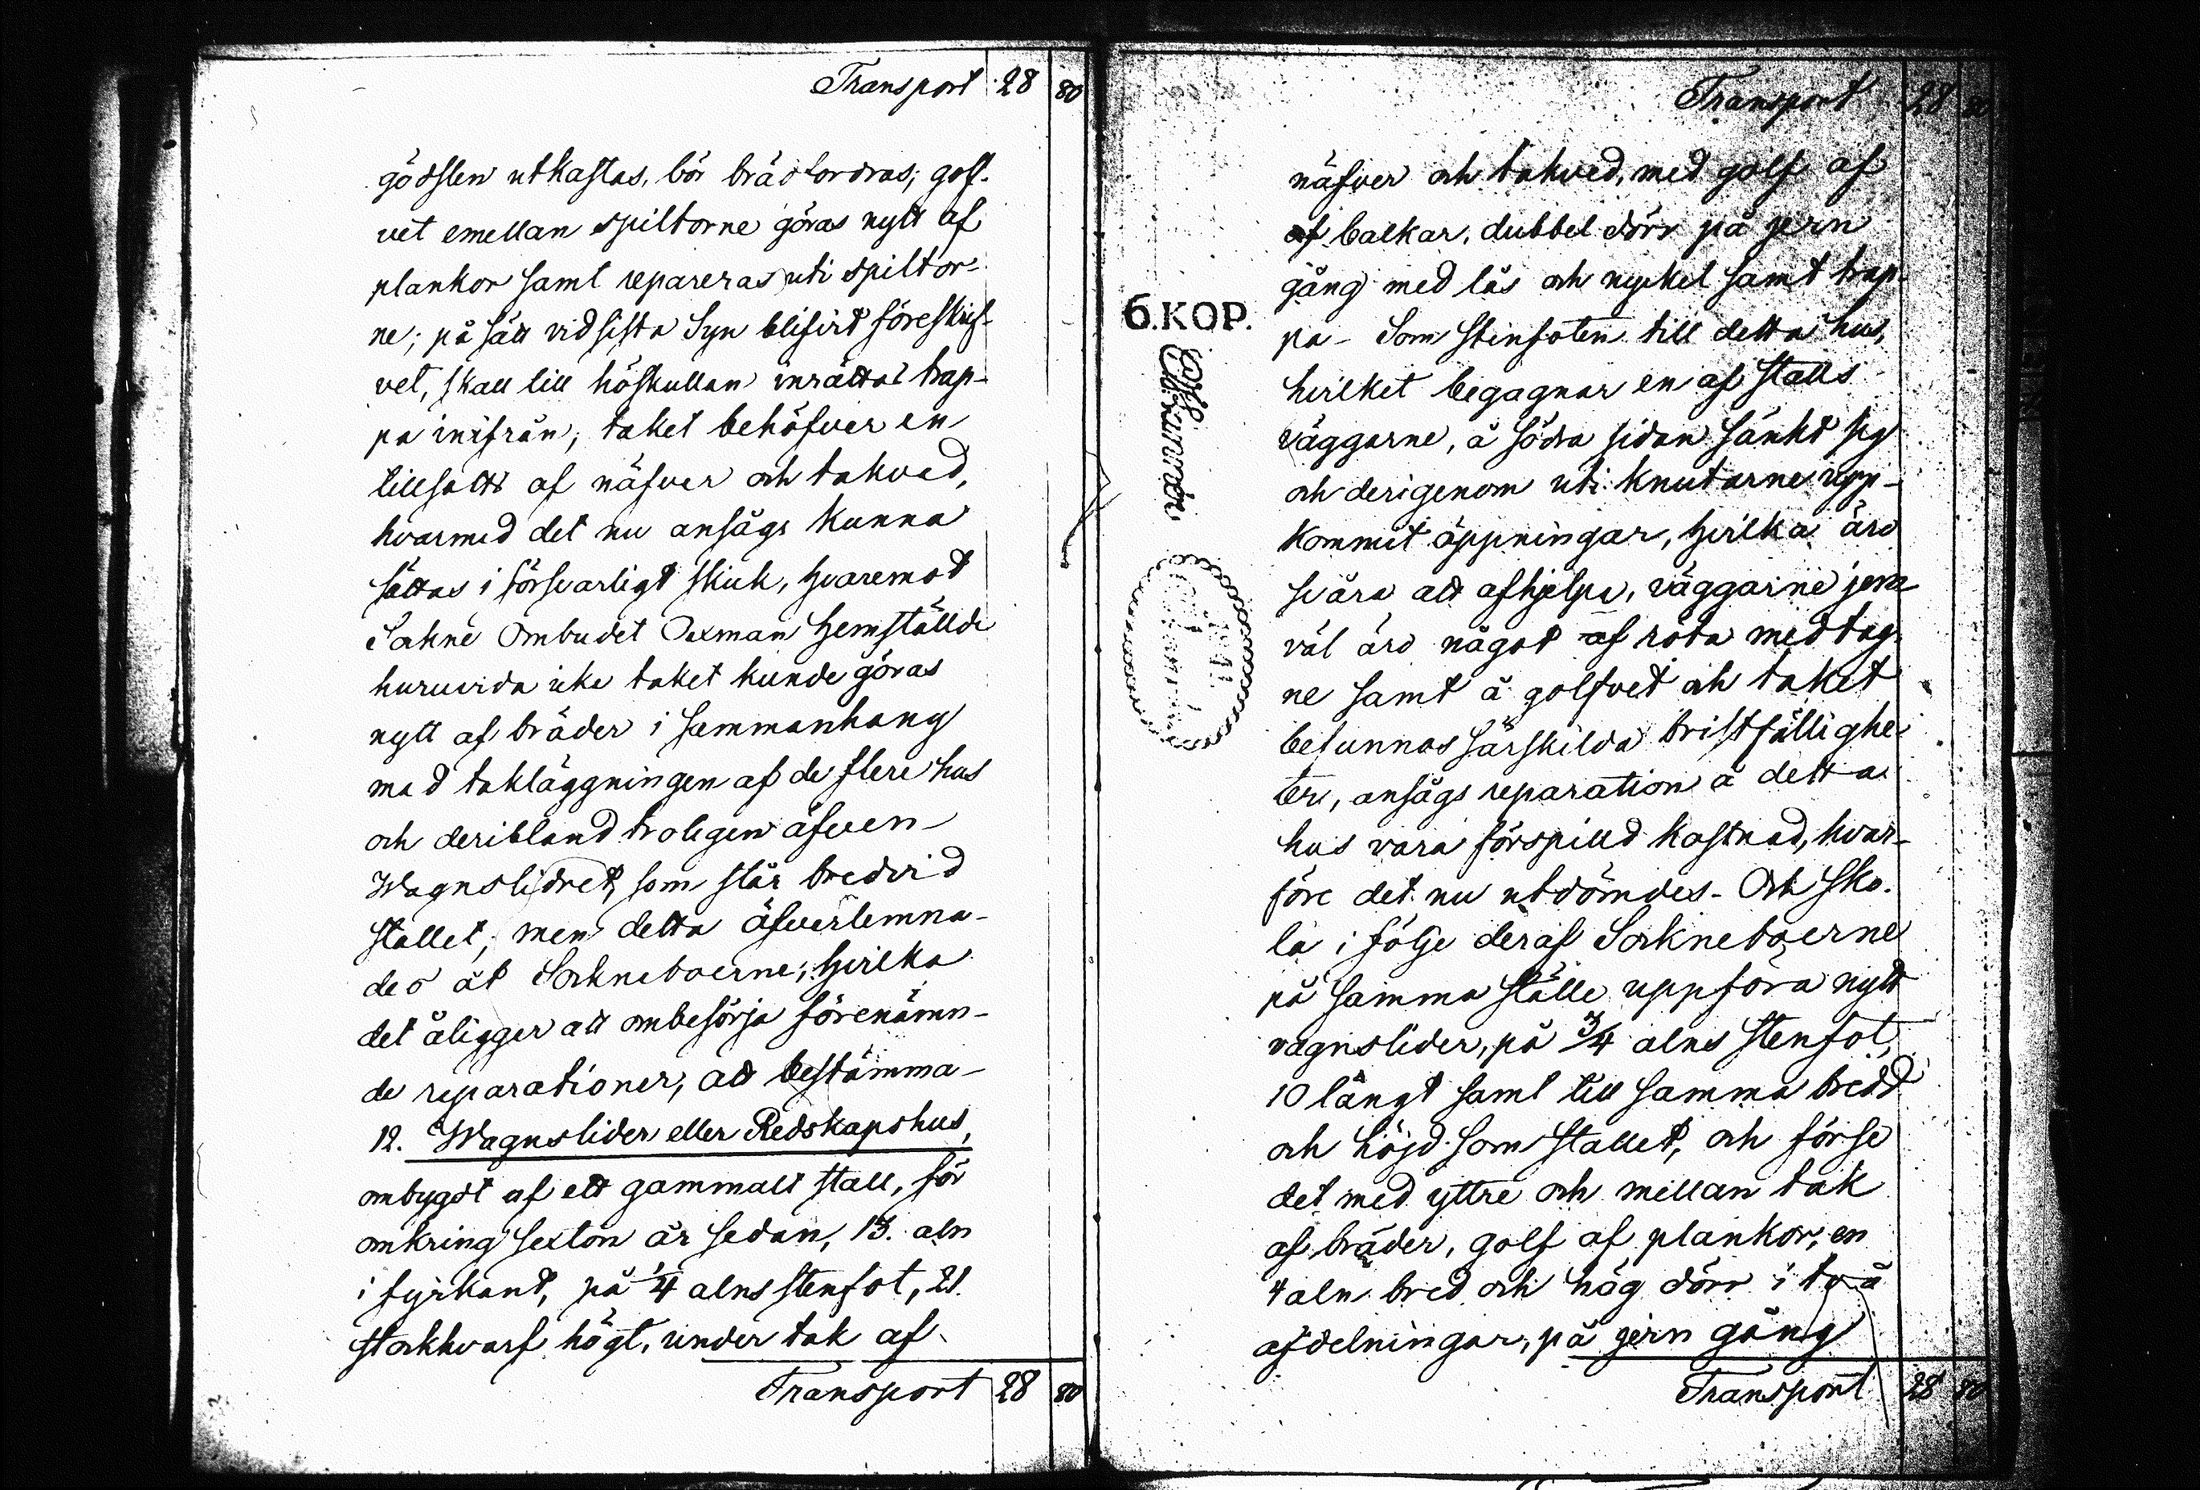 Transport 28 80
gödslen utkastas, bör brädfordras; golf-
vet emellan spiltorne göras nytt af
plankor samt repareras uti spiltor-
ne; på sätt vid sista Syn blifvit föreskrif-
vet, skall till höskullan inrättas trap-
pa inifrån; taket behöfver en
tillsatts af näfver och takved,
hvarmed det nu ansågs kunna
sättas i försvarligt skick, hvaremot
Sockne Ombudet Oxman hemställde
huruvida icke taket kunde göras
nytt af bräder i sammanhang
med takläggningen af de flere hus
och deribland troligen äfven
Wagnslidret, som står bredvid
stallet; men detta öfverlemna-
des åt Socknboerne; hvilka
det åligger att ombesörja förenämn-
de reparationer, att bestämma
12. Wagnslider eller Redskapshus,
ombygdt af ett gammalt stall, för
omkring sexton år sedan, 13. aln
i fyrkant, på 1/4 alns stenfot, 21.
stockhvarf högt, under tak af
Transport 28 80
Transport 28 80
näfver och takved, med golf af
af balkar, dubbel dörr på jern
gång med lås och nyckel samt trap-
pa - Som stenfoten till detta hus,
hvilket begagnar en af stalls
väggarne, å södra sidan sänkt sig
och derigenom uti knutarne upp-
kommit öppningar, hvilka äro
svåra att afhjelpa, väggarne jem-
väl äro något af röta medtag-
ne samt å golfvet och taket
befunnos särskilda bristfällighe-
ter, ansågs reparation å detta
hus vara förspilld kostnad, hvar-
före det nu utdömdes - Och sko-
la i följe deraf Sockneboerne
på samma ställe uppföra nytt
vagnslider, på 3/4 alns stenfot,
10 långt samt till samma bredd
och höjd som stallet, och förse
det med yttre och mellan tak
af bräder, golf af plankor, en
4 aln bred och hög dörr i två
afdelningar, på jern gång
Transport 28 80
6. KOP.